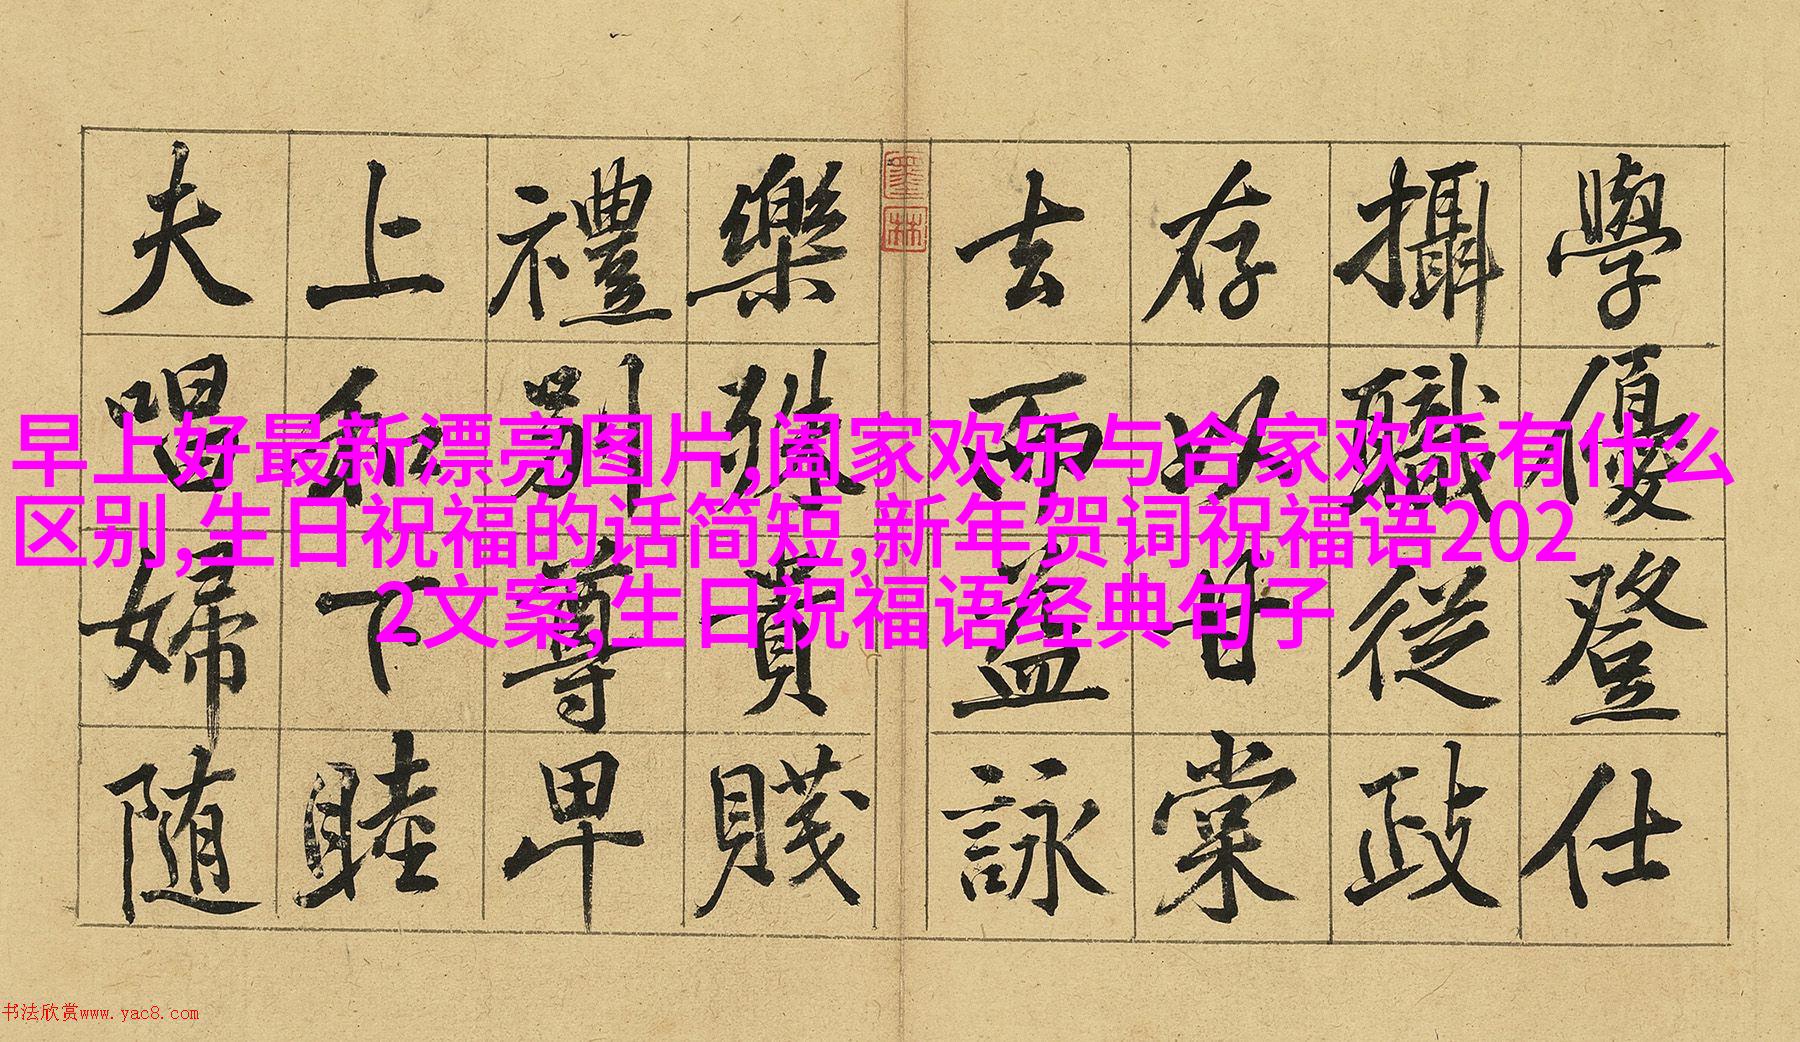 學優登仕
攝職從政
存以甘棠
去而益詠
墨林
樂殊貴賤
禮別尊卑
上和下睦
夫唱婦随
早上好最新漂亮图片,阖家欢乐与合家欢乐有什么
区别,生日祝福的话简短,新年贺词祝福语202
2文案,生日祝福语经典句子
书法欣赏www.yac8.com